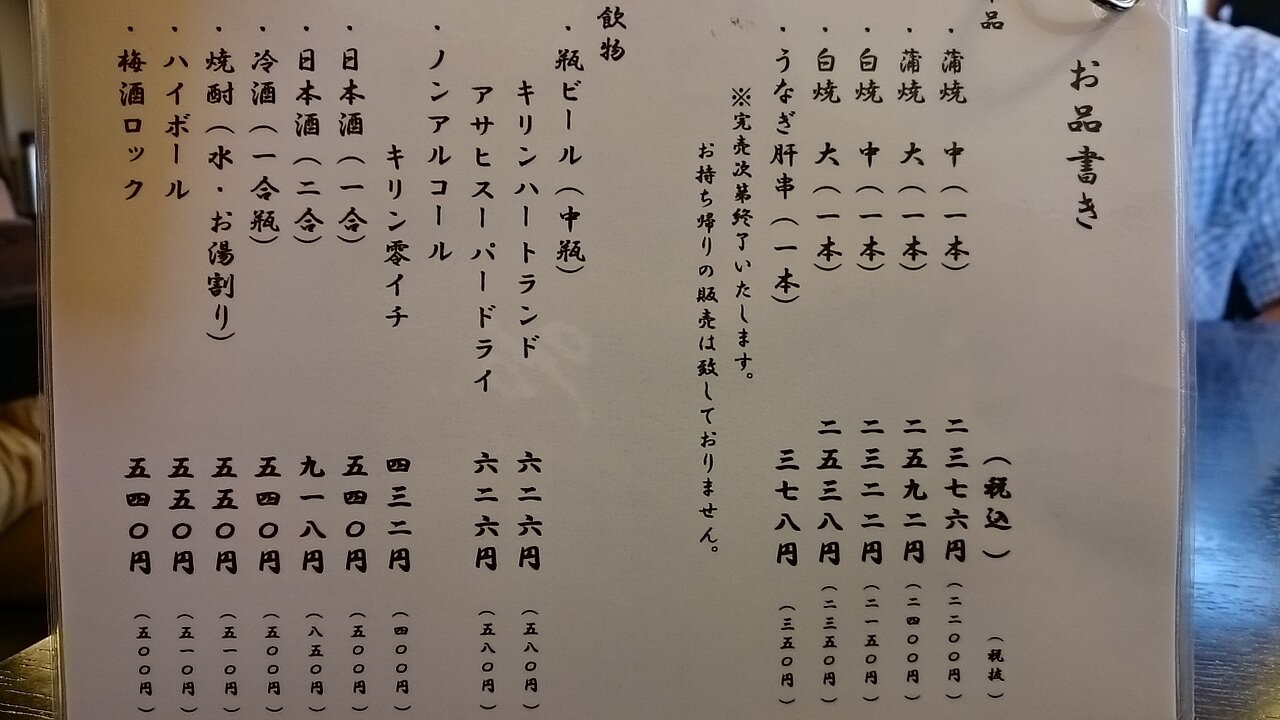 お品書き
品
（税込）（税抜）
・蒲焼 中（一本） 二三七六円（二二〇〇円）
・蒲焼 大（一本） 二五九二円（二四〇〇円）
・白焼 中（一本） 二三二二円（二一五〇円）
・白焼 大（一本） 二五三八円（二三五〇円）
・うなぎ肝串（一本） 三七八円（三五〇円）
※完売次第終了いたします。
お持ち帰りの販売は致しておりません。
飲物
・瓶ビール（中瓶）
キリンハートランド 六二六円（五八〇円）
アサヒスーパードライ 六二六円（五八〇円）
・ノンアルコール
キリン零イチ 四三二円（四〇〇円）
・日本酒（一合） 五四〇円（五〇〇円）
・日本酒（二合） 九一八円（八五〇円）
・冷酒（一合瓶） 五四〇円（五〇〇円）
・焼酎（水・お湯割り） 五五〇円（五一〇円）
・ハイボール 五五〇円（五一〇円）
・梅酒ロック 五四〇円（五〇〇円）